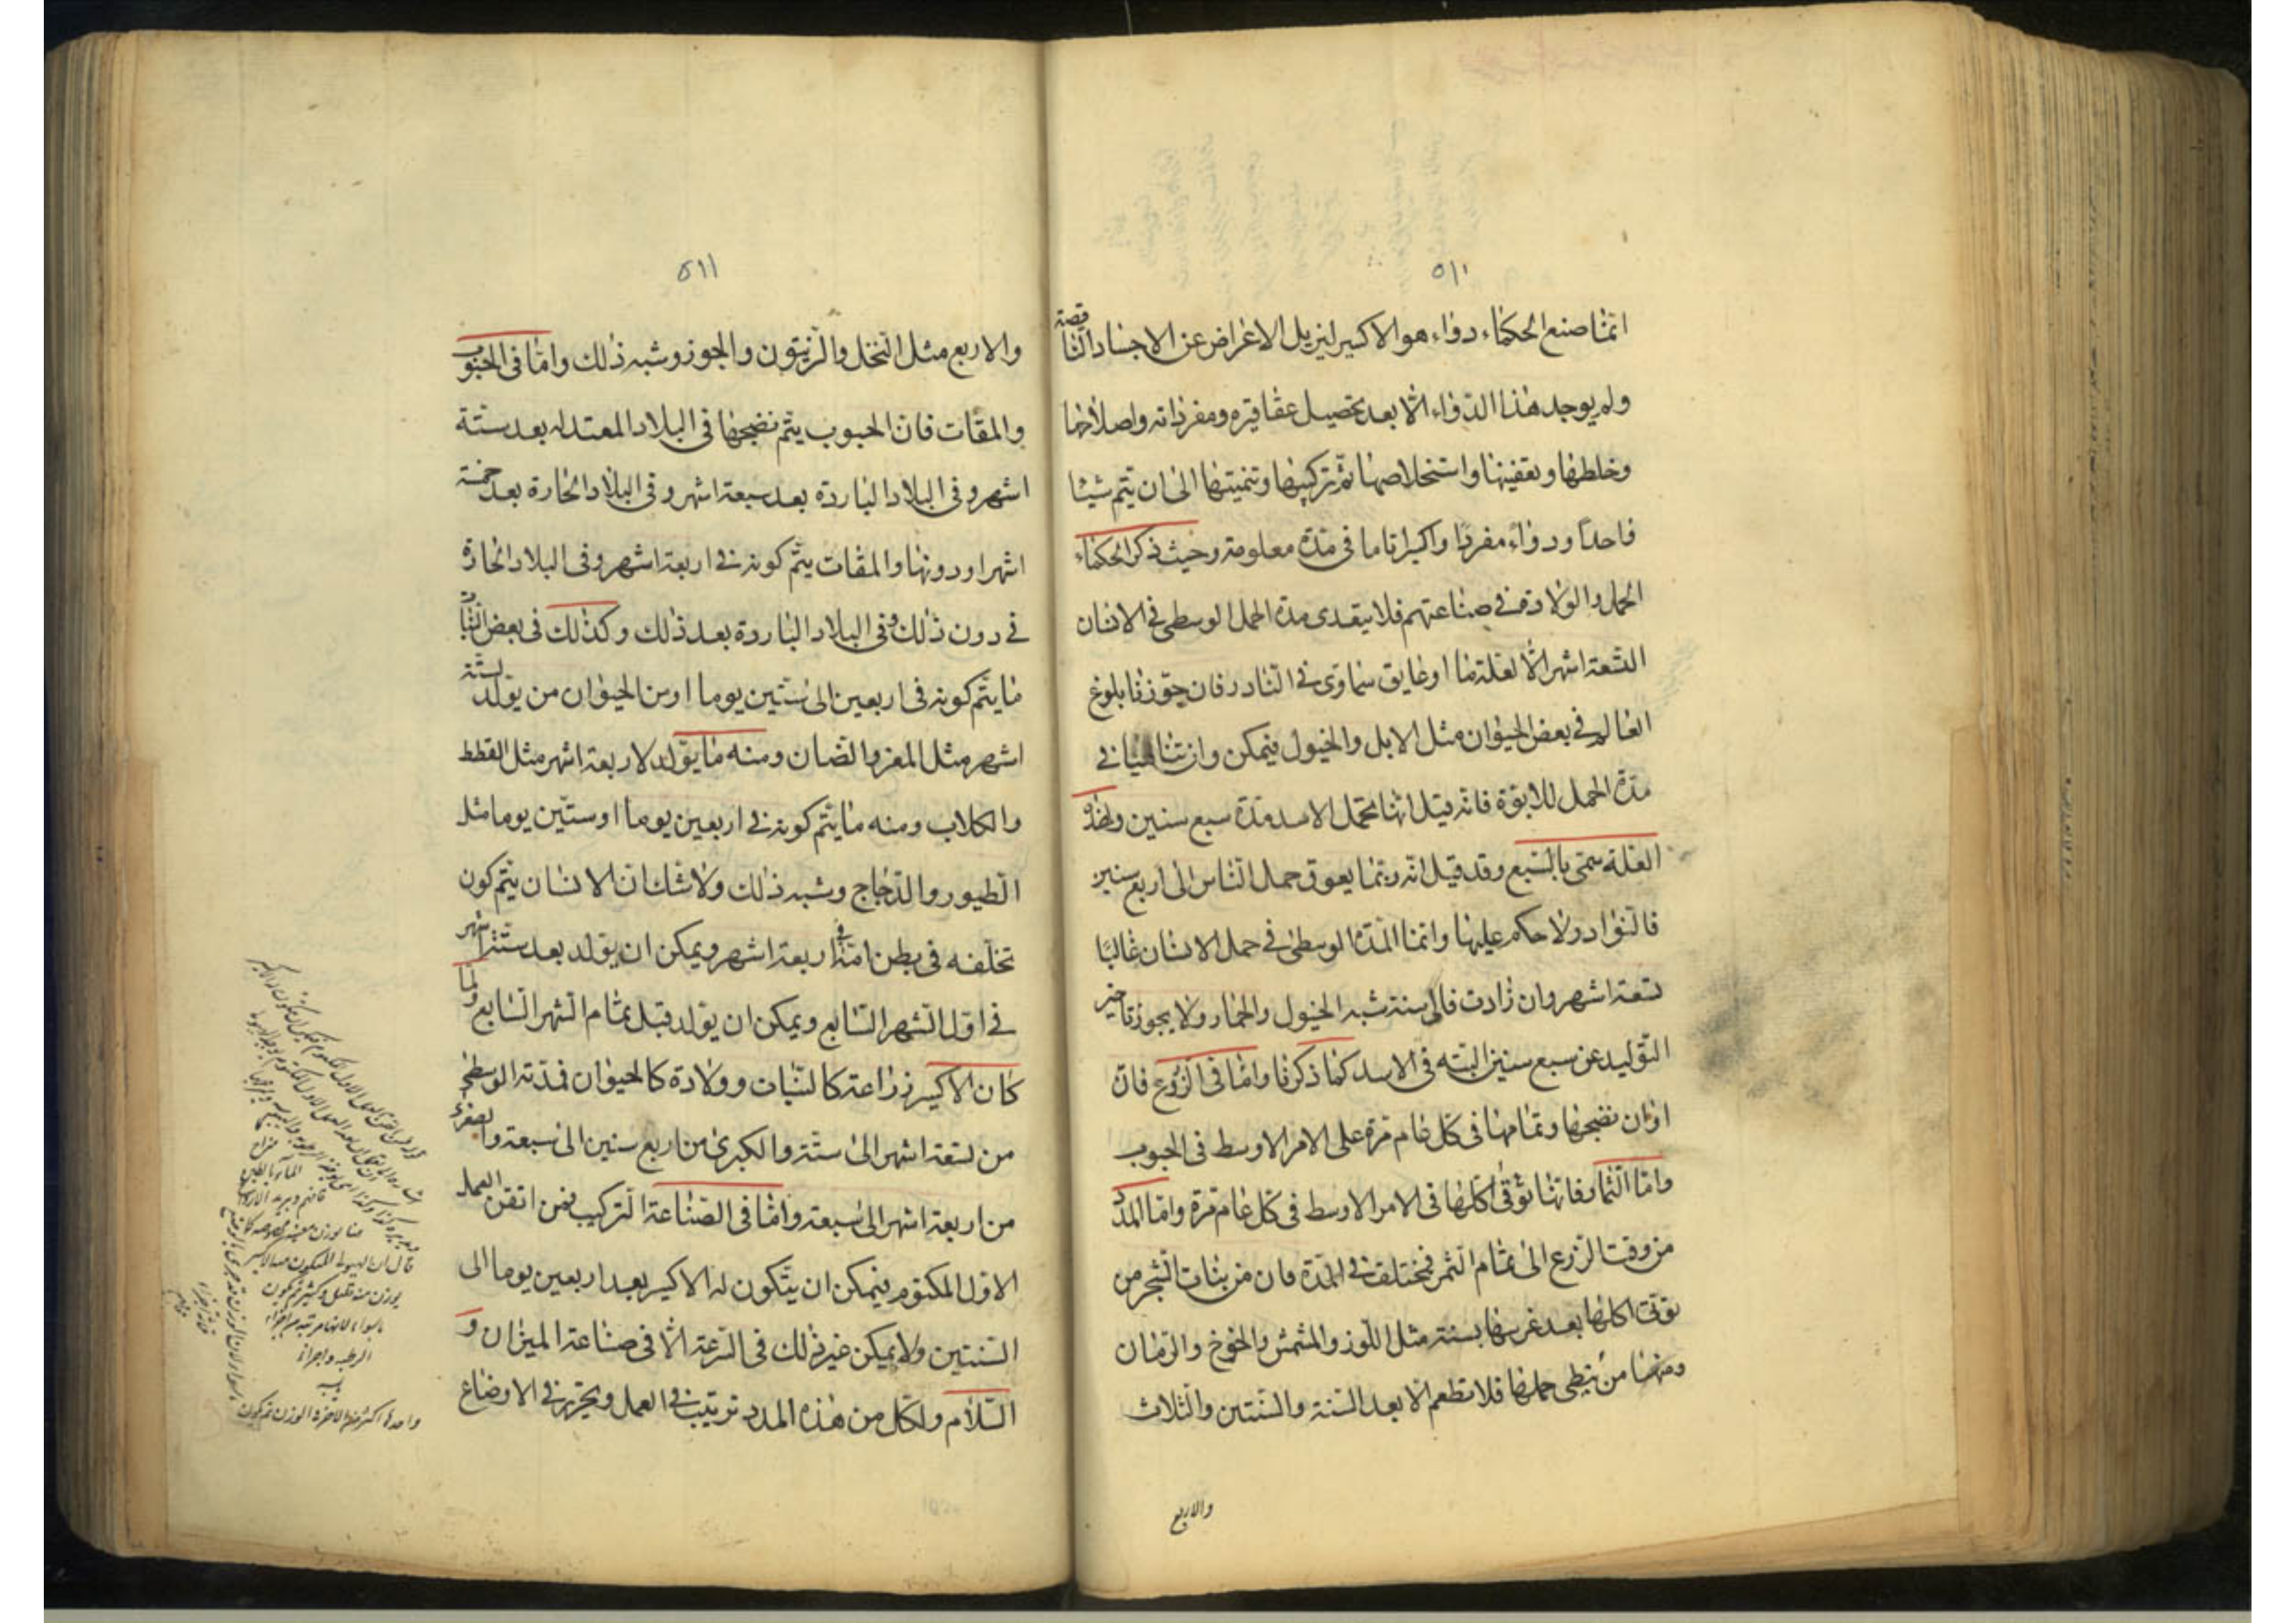 ٥١٠
انما صنع الحكماء دواء هو الاكسير ليزيل الاعراض عن الاجساد الناقصة
ولم يوجد هذا الدواء الا بعد تحصيل عقاقيره ومفرداته واصلاحها
وخلطها وتعفينها واستخلاصها ثم تركيبها وتنميتها الى ان يتم شيئا
واحدا ودواء مفردا واكسيرا تاما فى مدة معلومة وحيث ذكر الحكماء
الحمل والولادة فى صناعتهم فلا يتعدى مدة الحمل الوسطى فى الانسان
التسعة اشهر الا لعلة ما او عايق سماوى فى النادر فان جوزنا بلوغ
العالم فى بعض الحيوان مثل الابل والخيول فيمكن وان تناهينا فى
مدة الحمل للابوة فانه قيل انها تحمل الاسد مدة سبع سنين ولهذه
العلة سمى بالسبع وقد قيل انه ربما يعوق حمل الناس الى اربع سنين
فالنوادر لا حكم عليها وانما المدة الوسطى فى حمل الانسان غالبا
تسعة اشهر وان زادت فالى سنة شبه الخيول والحمار ولا يجوز تاخير
التوليد عن سبع سنين البته فى الاسد كما ذكرنا واما فى الزروع فان
اوان نضجها وتمامها فى كل عام مرة على الامر الاوسط فى الحبوب
واما الثمار فانها تؤتى اكلها فى الامر الاوسط فى كل عام مرة واما المدد
من وقت الزرع الى تمام الثمر فمختلف فى المدة فان من نبات الشجر من
يؤتى اكلها بعد غرسها بسنة مثل اللوز والمشمش والخوخ والرمان
ومنها من يبطى حملها فلا تطعم الا بعد السنة والسنتين والثلاث
والاربع
٥١١
والاربع مثل النخل والزيتون والجوز وشبه ذلك واما فى الحبوب
والمقات فان الحبوب يتم نضجها فى البلاد المعتدله بعد ستة
اشهر وفى البلاد الباردة بعد سبعة اشهر وفى البلاد الحارة بعد خمسة
اشهر او دونها والمقات يتم كونه فى اربعة اشهر وفى البلاد الحارة
فى دون ذلك وفى البلاد الباردة بعد ذلك وكذلك فى بعض النبات
ما يتم كونه فى اربعين الى ستين يوما او من الحيوان من يولد لستة
اشهر مثل المعز والضان ومنه ما يولد لاربعة اشهر مثل القطط
والكلاب ومنه ما يتم كونه فى اربعين يوما او ستين يوما مثل
الطيور والدجاج وشبه ذلك ولا شك ان الانسان يتم كون
تخلفه فى بطن امه فى اربعة اشهر ويمكن ان يولد بعد ستة اشهر
فى اول الشهر السابع ويمكن ان يولد قبل تمام الشهر السابع ولما
كان الاكسير زراعة كالنبات وولادة كالحيوان فمدته الوسطى
من تسعة اشهر الى ستة والكبرى من اربع سنين الى سبعة والصغرى
من اربعة اشهر الى سبعة واما فى الصناعة التركيب فمن اتقن العمل
الاول المكتوم فيمكن ان يتكون له الاكسير بعد اربعين يوما الى
السنتين ولا يمكن غير ذلك فى السرعة الا فى صناعة الميزان و
السلام ولكل من هذه المدد ترتيب فى العمل وتحرير فى الاوضاع